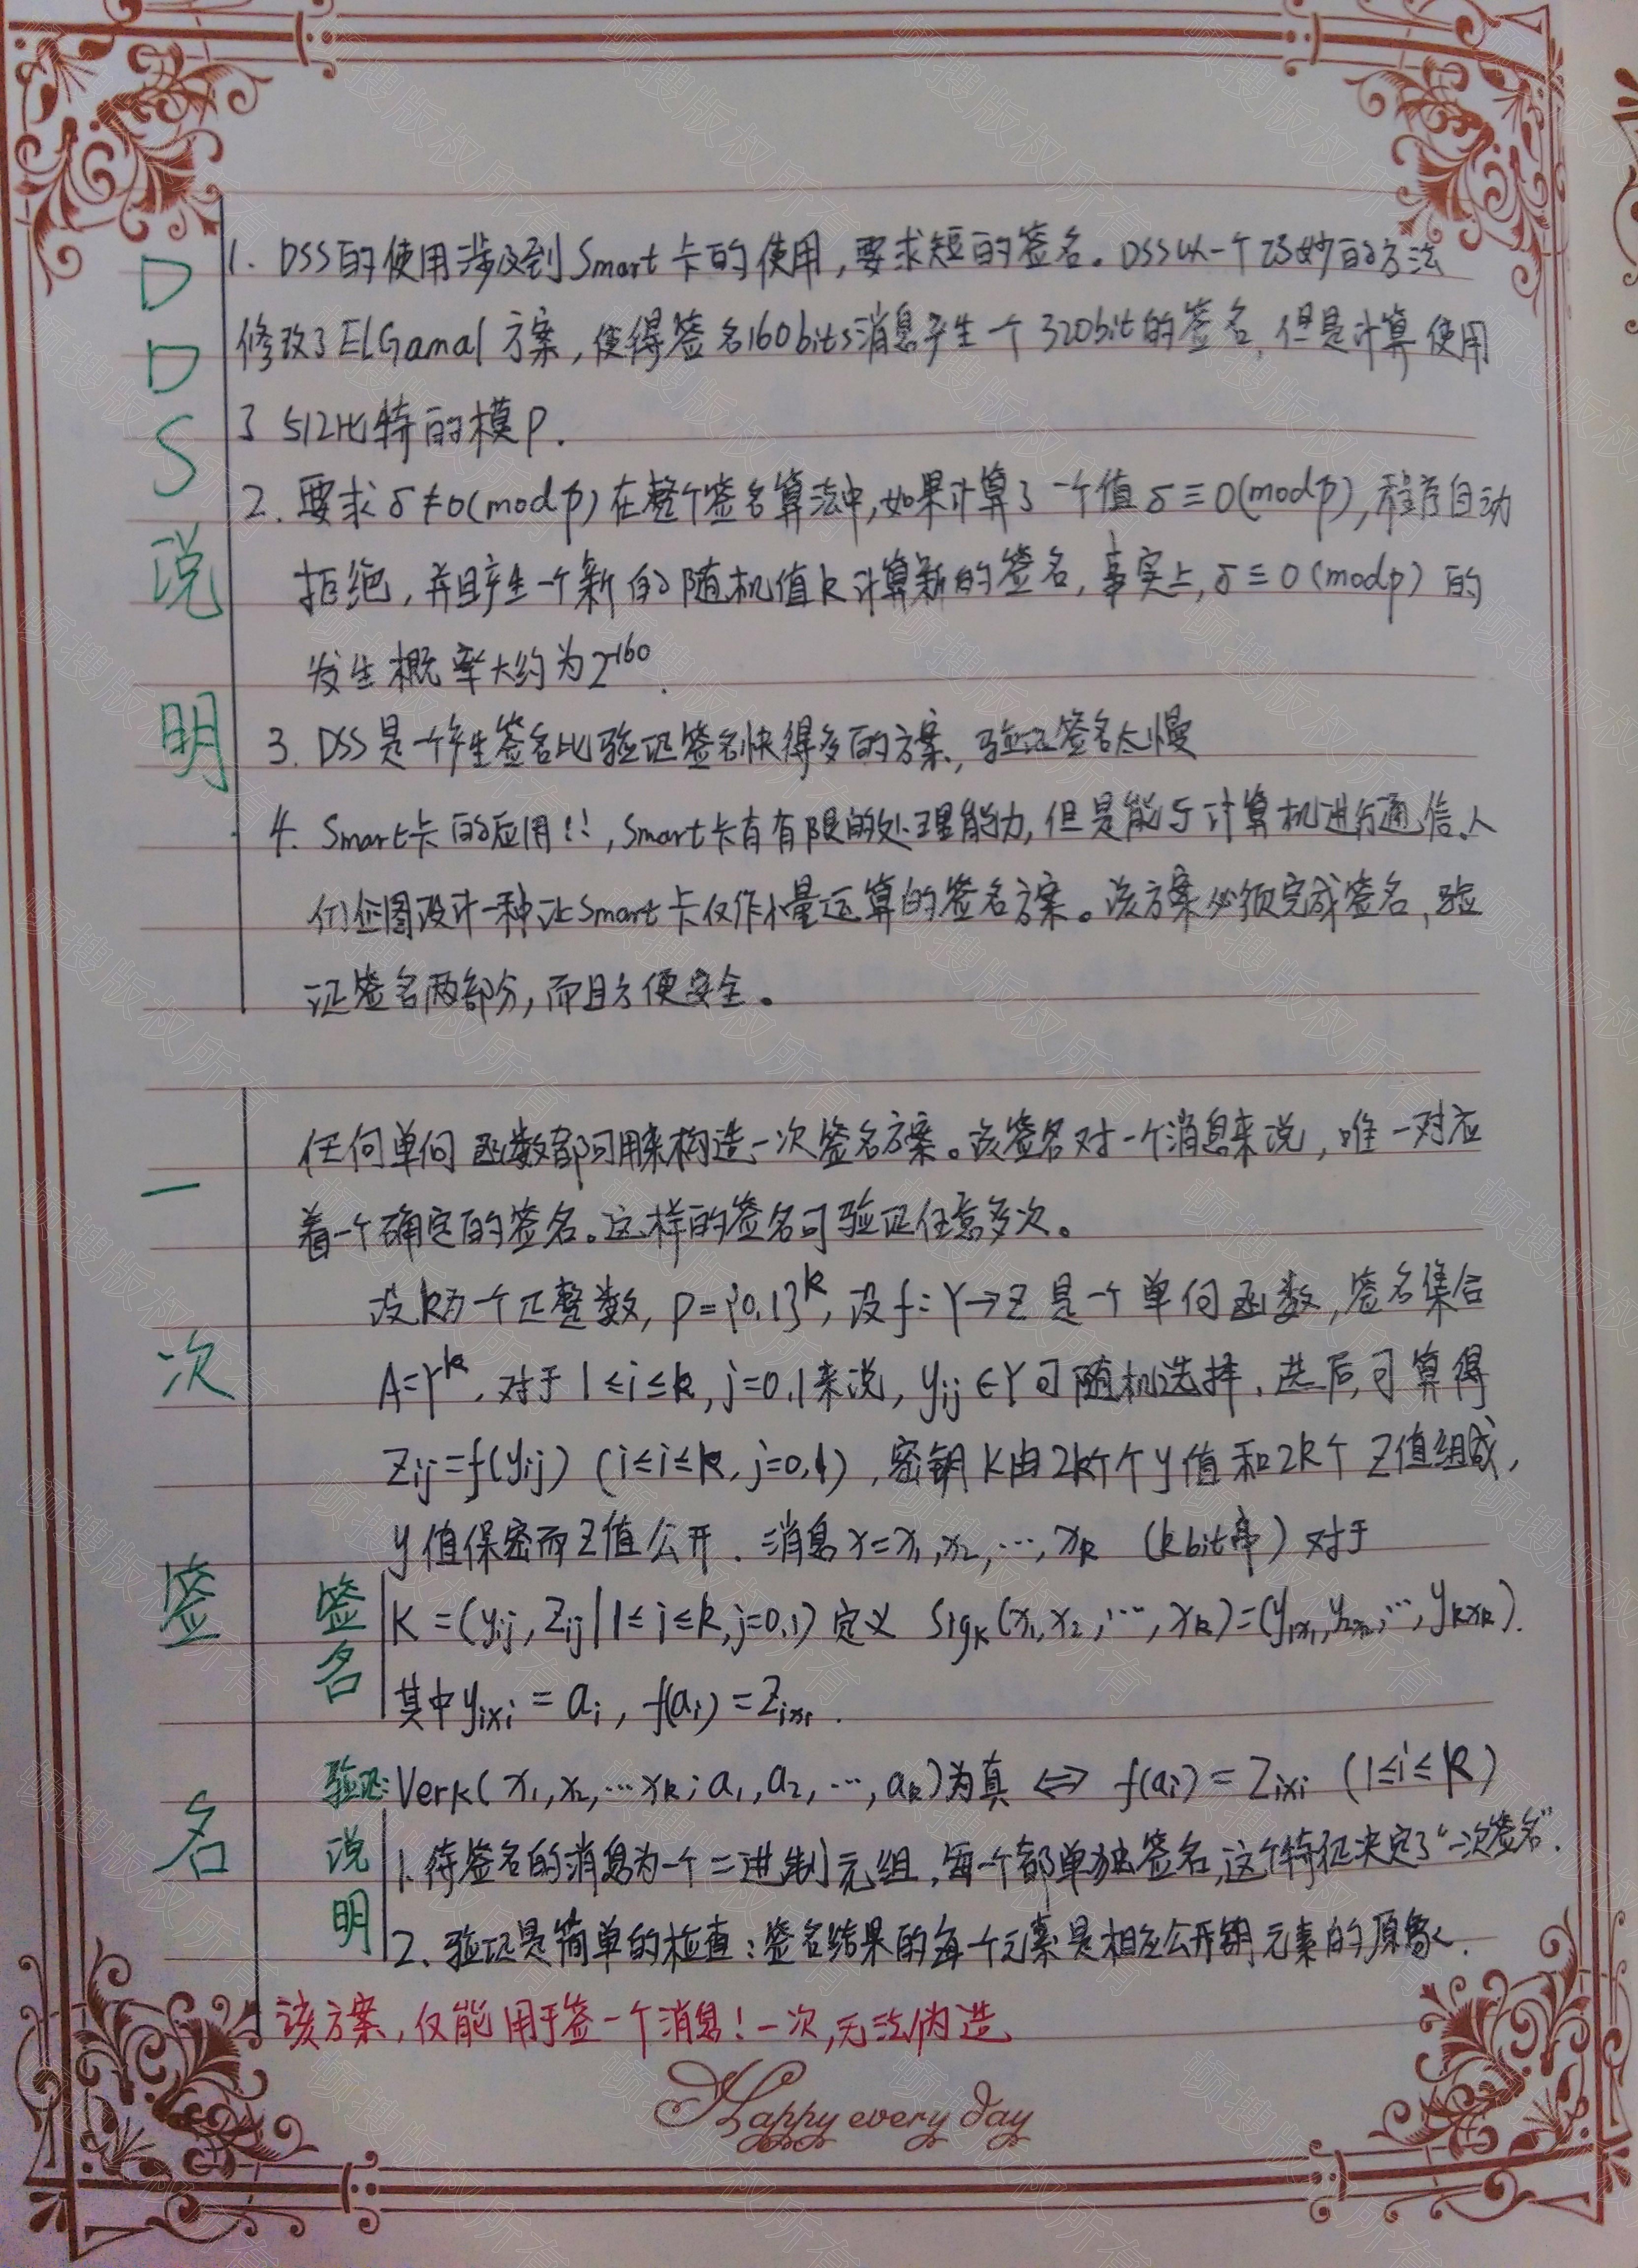 DDS说明
1. DSS的使用涉及到Smart卡的使用,要求短的签名。DSS以一个巧妙的方法
修改了ELGamal方案,使得签名160bits消息产生一个320bit的签名,但是计算使用
了512比特的模p.
2. 要求δ≠0(modp)在整个签名算法中,如果计算了一个值δ≡0(modp),程序自动
拒绝,并且产生一个新的随机值k计算新的签名,事实上,δ≡0(modp)的
发生概率大约为2^-160.
3. DSS是一个产生签名比验证签名快得多的方案,验证签名太慢
4. Smart卡的应用!!,Smart卡有有限的处理能力,但是能与计算机进行通信.人
们企图设计一种让Smart卡仅作小量运算的签名方案。该方案必须完成签名、验
证签名两部分,而且方便安全。
一次签名
任何单向函数都可用来构造一次签名方案。该签名对一个消息来说,唯一对应
着一个确定的签名。这样的签名可验证任意多次。
设k为一个正整数,P={0,1}^k,设f:Y→Z是一个单向函数,签名集合
A=Y^k,对于1≤i≤k,j=0,1来说,yij∈Y可随机选择.选后,可算得
Zij=f(yij)(i≤i≤k,j=0,1),密钥K由2k个个y值和2k个Z值组成,
y值保密而Z值公开.消息x=x1,x2,…,xk (kbit串)对于
签名
K=(yij,Zij|1≤i≤k,j=0,1)定义 SigK(x1,x2,…,xk)=(y1x1,y2x2,…,ykxk).
其中yixi=ai,f(ai)=Zixi.
验证:Verk(x1,x2,…xk;a1,a2,…,ak)为真⇔f(ai)=Zixi (1≤i≤k)
说明
1.待签名的消息为一个二进制元组,每一个都单独签名,这个特征决定了“一次签名”.
2.验证是简单的检查:签名结果的每一个元素是相应公开钥元素的原象.
该方案,仅能用于签一个消息!一次,无法伪造
Happy every day
硕搜版权所有